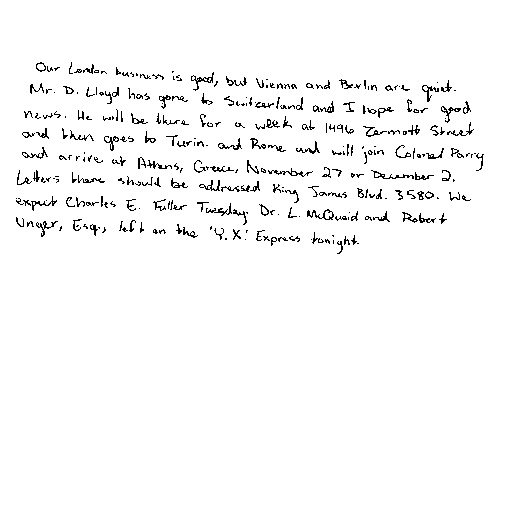 Our London business is good, but Vienna and Berlin are quiet.
Mr. D. Lloyd has gone to Switzerland and I hope for good
news. He will be there for a week at 1496 Zermott Street
and then goes to Turin. and Rome and will join Colonel Parry
and arrive at Athens, Greece, November 27 or December 2.
Letters there should be addressed King James Blvd. 3580. We
expect Charles E. Fuller Tuesday. Dr. L. McQuaid and Robert
Unger, Esq., left on the 'Y.X.' Express tonight.